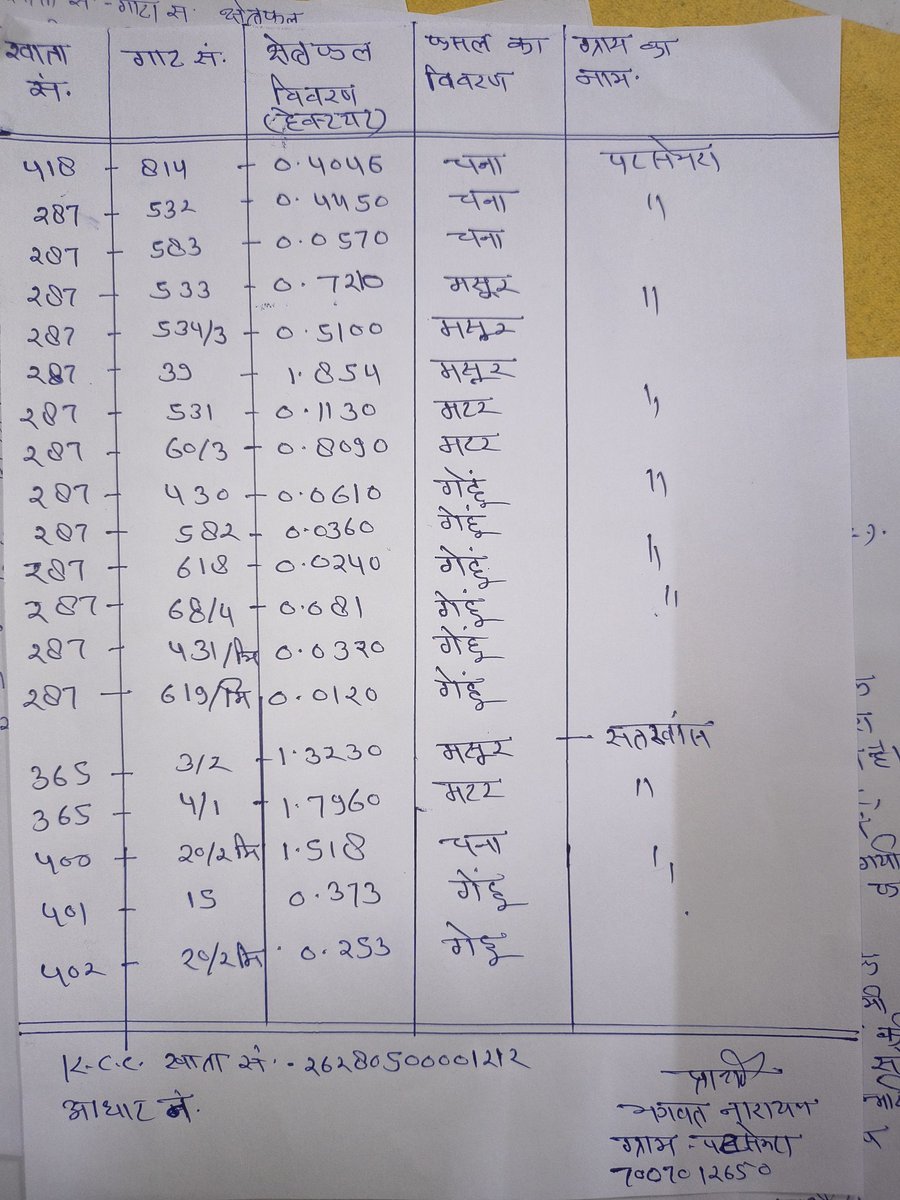 खाता सं. गाटा सं. क्षेत्रफल
खाता सं. गाट सं. क्षेत्रफल विवरण (हेक्टयर) फसल का विवरण ग्राम का नाम.
418 814 0.4046 चना
287 532 0.4450 चना "
287 583 0.0570 चना
287 533 0.7210 मसूर "
287 534/3 0.5100 मसूर
287 39 1.854 मसूर
287 531 0.1130 मटर "
287 60/3 0.8090 मटर
287 430 0.0610 गेहूं "
287 582 0.0360 गेहूं
287 618 0.0240 गेहूं "
287 68/4 0.081 गेहूं "
287 431/मि 0.0320 गेहूं
287 619/मि 0.0120 गेहूं
365 3/2 1.3230 मसूर
365 4/1 1.7960 मटर "
400 20/2मि 1.518 चना "
401 15 0.373 गेंहू
402 20/2मि 0.253 गेहू
K.C.C. खाता सं. - 26280500001212
आधार नं.
प्रार्थी
भगवत नारायण
ग्राम -
7007012650